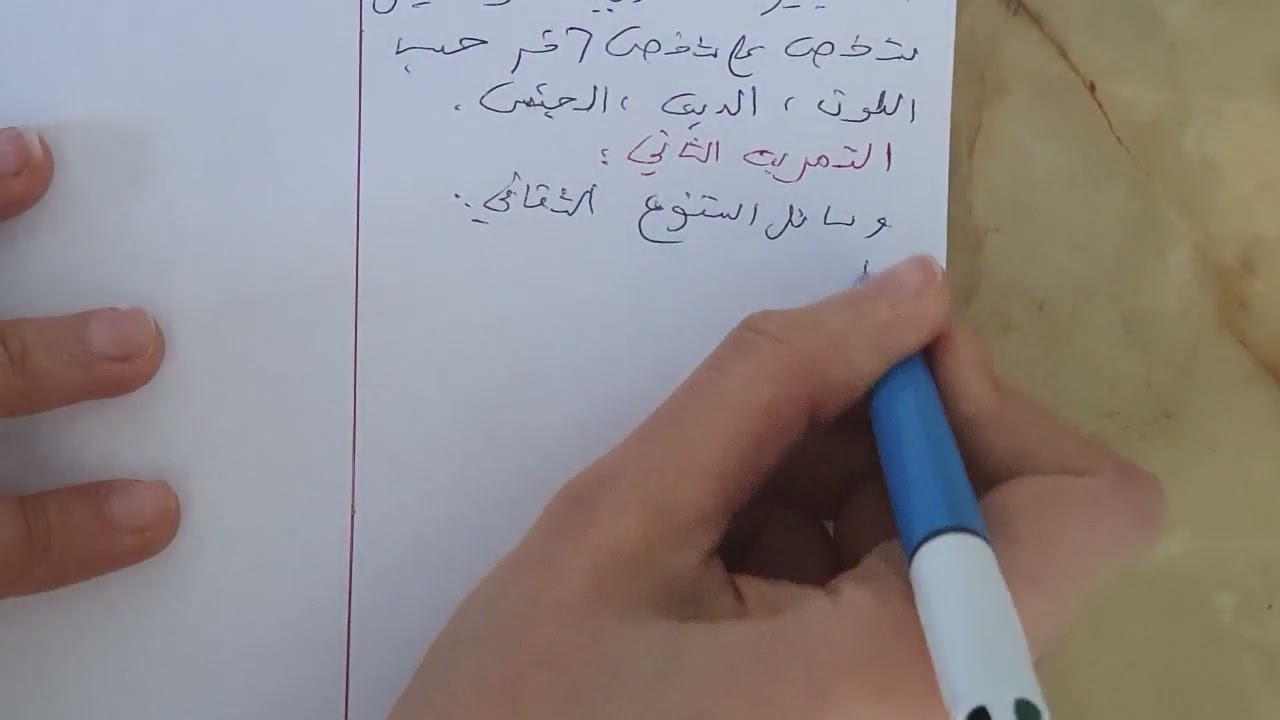 شخص على شخص آخر حسب
اللون ، الدين ، الجنس .
التمرين الثاني :
وسائل التنوع الثقافي :